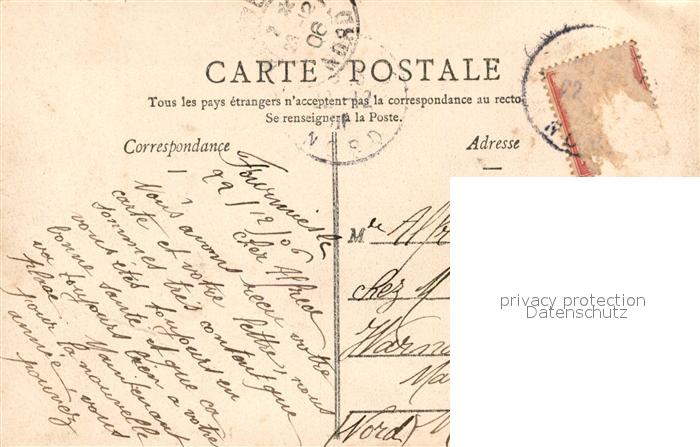 CARTE POSTALE
Tous les pays étrangers n'acceptent pas la correspondance au recto
Se renseigner à la Poste.
Correspondance
Adresse
NORD
Fourmies le
22/12/06
Cher Alfred
Nous avons reçu votre
carte et votre lettre, nous
sommes très content que
vous êtes toujours en
bonne santé et que ca
va toujours bien a votre
place Maintenant
pour la nouvelle
année vous
pouvez
M
Chez M
Nord
privacy protection
Datenschutz